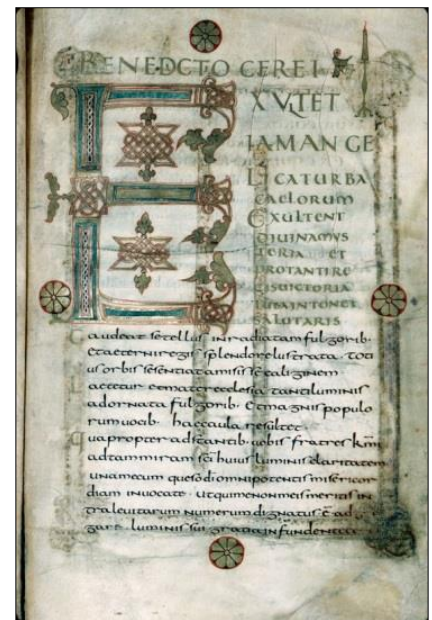 BENEDCTO CEREI
EXVLTET
IAM ANGE
LICATURBA
CAELORUM
EXULTENT
DIUINAMYS
TERIA ET
PROTANTIRE
GISUICTORIA
TUBAINTONET
SALUTARIS
Gaudeat setellus inradiatam fulgorib.
Etaeterniregis splendoreluſtrata. toti
us orbis sesentiat amisisse caliginem.
Laetetur etmaterecclesia tantiluminis
adornata fulgorib. Etmagnis populo
rum uocib. haecaula resultet
quapropter adstantib. uobis fratres kmi
adtammiram sci huius luminis claritatem
unamecum queso di omnipotentis misericor
diam inuocate. Utquimenonmeis meritis in
traleuitarum numerum dignatus e ad
gare. luminis sui gratia infundentia